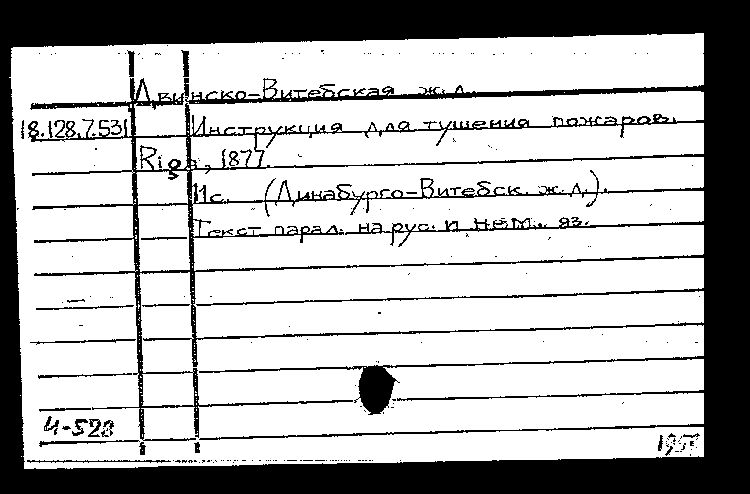 Двинско-Витебская ж.д.
18.128.7.531 Инструкция для тушения пожаров.
Riga, 1877.
11с. (Динабурго-Витебск. ж.д.).
Текст парал. на рус. и нем. яз.
4-528